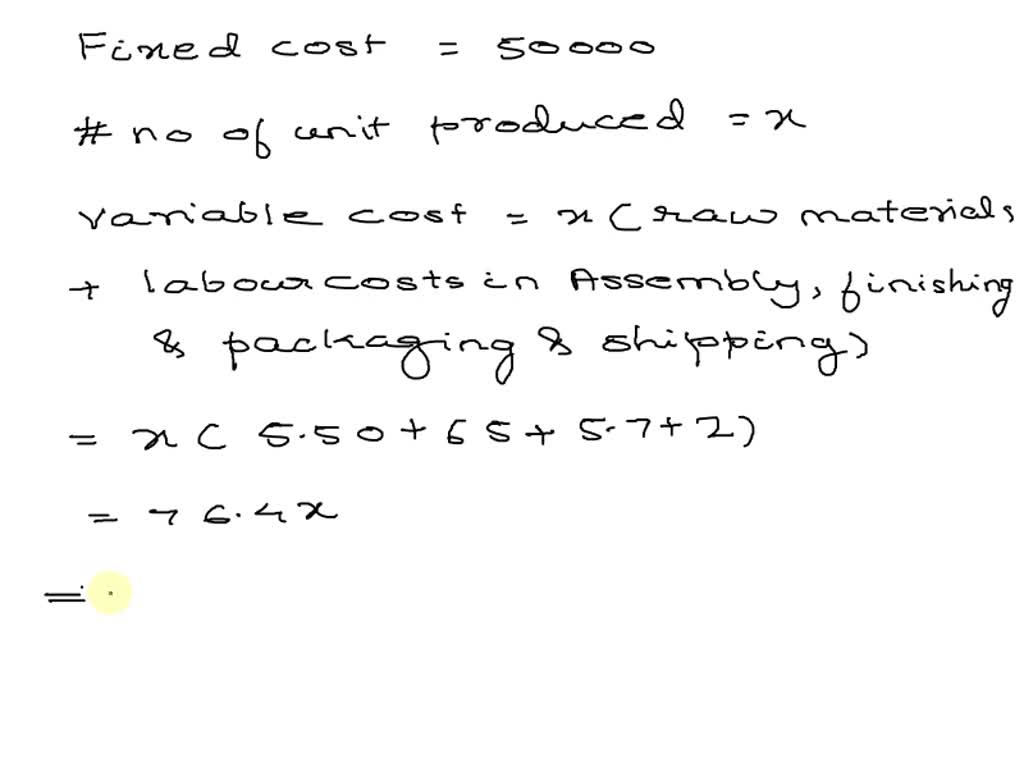 Fixed cost = 50000
# no of unit produced = x
variable cost = x ( raw materials
+ labour costs in Assembly, finishing
& packaging & shipping)
= x ( 5.50 + 65 + 5.7 + 2)
= 76.4x
=